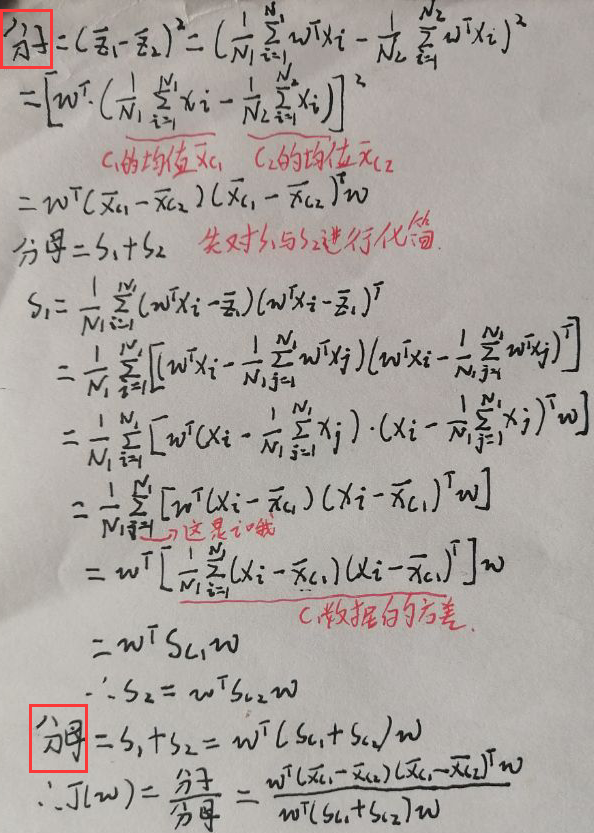 分子 = (z̄₁ - z̄₂)² = (1/N₁ ∑_{i=1}^{N₁} wᵀxᵢ - 1/N₂ ∑_{i=1}^{N₂} wᵀxᵢ)²
= [wᵀ·(1/N₁ ∑_{i=1}^{N₁} xᵢ - 1/N₂ ∑_{i=1}^{N₂} xᵢ)]²
C₁的均值x̄_{C₁} C₂的均值x̄_{C₂}
= wᵀ(x̄_{C₁} - x̄_{C₂})(x̄_{C₁} - x̄_{C₂})ᵀw
分母 = S₁ + S₂ 先对S₁与S₂进行化简.
S₁ = 1/N₁ ∑_{i=1}^{N₁} (wᵀxᵢ - z̄₁)(wᵀxᵢ - z̄₁)ᵀ
= 1/N₁ ∑_{i=1}^{N₁} [(wᵀxᵢ - 1/N₁ ∑_{j=1}^{N₁} wᵀxⱼ)(wᵀxᵢ - 1/N₁ ∑_{j=1}^{N₁} wᵀxⱼ)ᵀ]
= 1/N₁ ∑_{i=1}^{N₁} [wᵀ(xᵢ - 1/N₁ ∑_{j=1}^{N₁} xⱼ)·(xᵢ - 1/N₁ ∑_{j=1}^{N₁} xⱼ)ᵀw]
= 1/N₁ ∑_{j=1}^{N₁} [wᵀ(xᵢ - x̄_{C₁})(xᵢ - x̄_{C₁})ᵀw]
→这是i哦
= wᵀ[1/N₁ ∑_{i=1}^{N₁} (xᵢ - x̄_{C₁})(xᵢ - x̄_{C₁})ᵀ]w
C₁数据的方差.
= wᵀS_{C₁}w
∴ S₂ = wᵀS_{C₂}w
分母 = S₁ + S₂ = wᵀ(S_{C₁} + S_{C₂})w
∴ J(w) = 分子/分母 = wᵀ(x̄_{C₁} - x̄_{C₂})(x̄_{C₁} - x̄_{C₂})ᵀw / wᵀ(S_{C₁} + S_{C₂})w